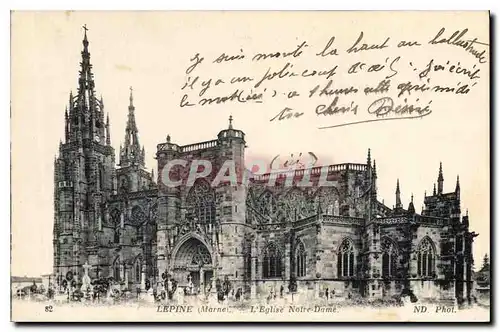 Je suis monté là haut au ballustrade
il y a un joli coup d'œil. J'écris
la montée à 2 heures après midi
ton chéris Désiré
CPARAMA
82
LEPINE (Marne). — L'Église Notre-Dame.
ND Phot.